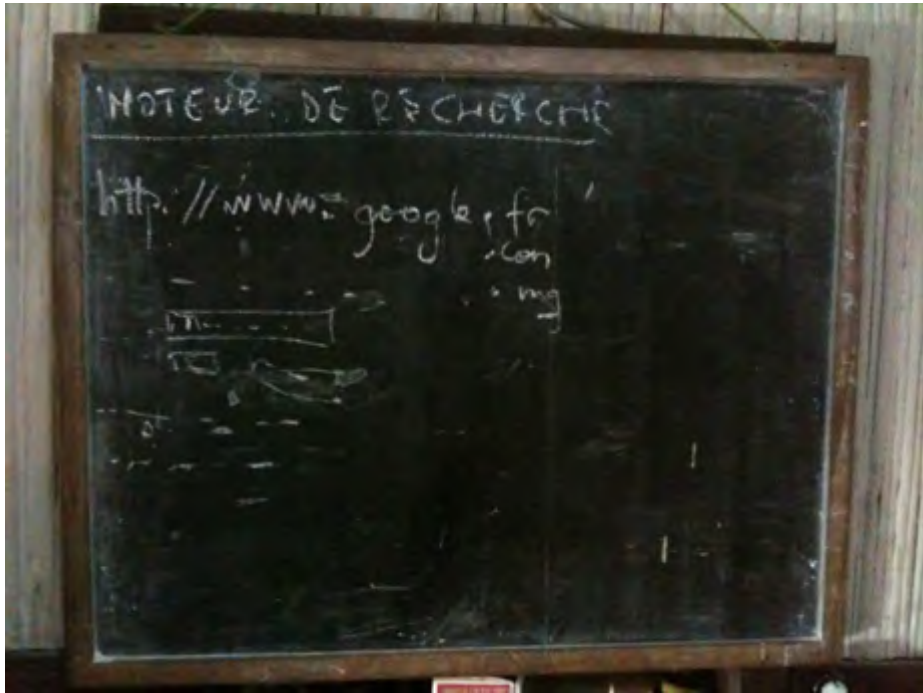 MOTEUR DE RECHERCHE
http://www.google.fr
.com
.mg